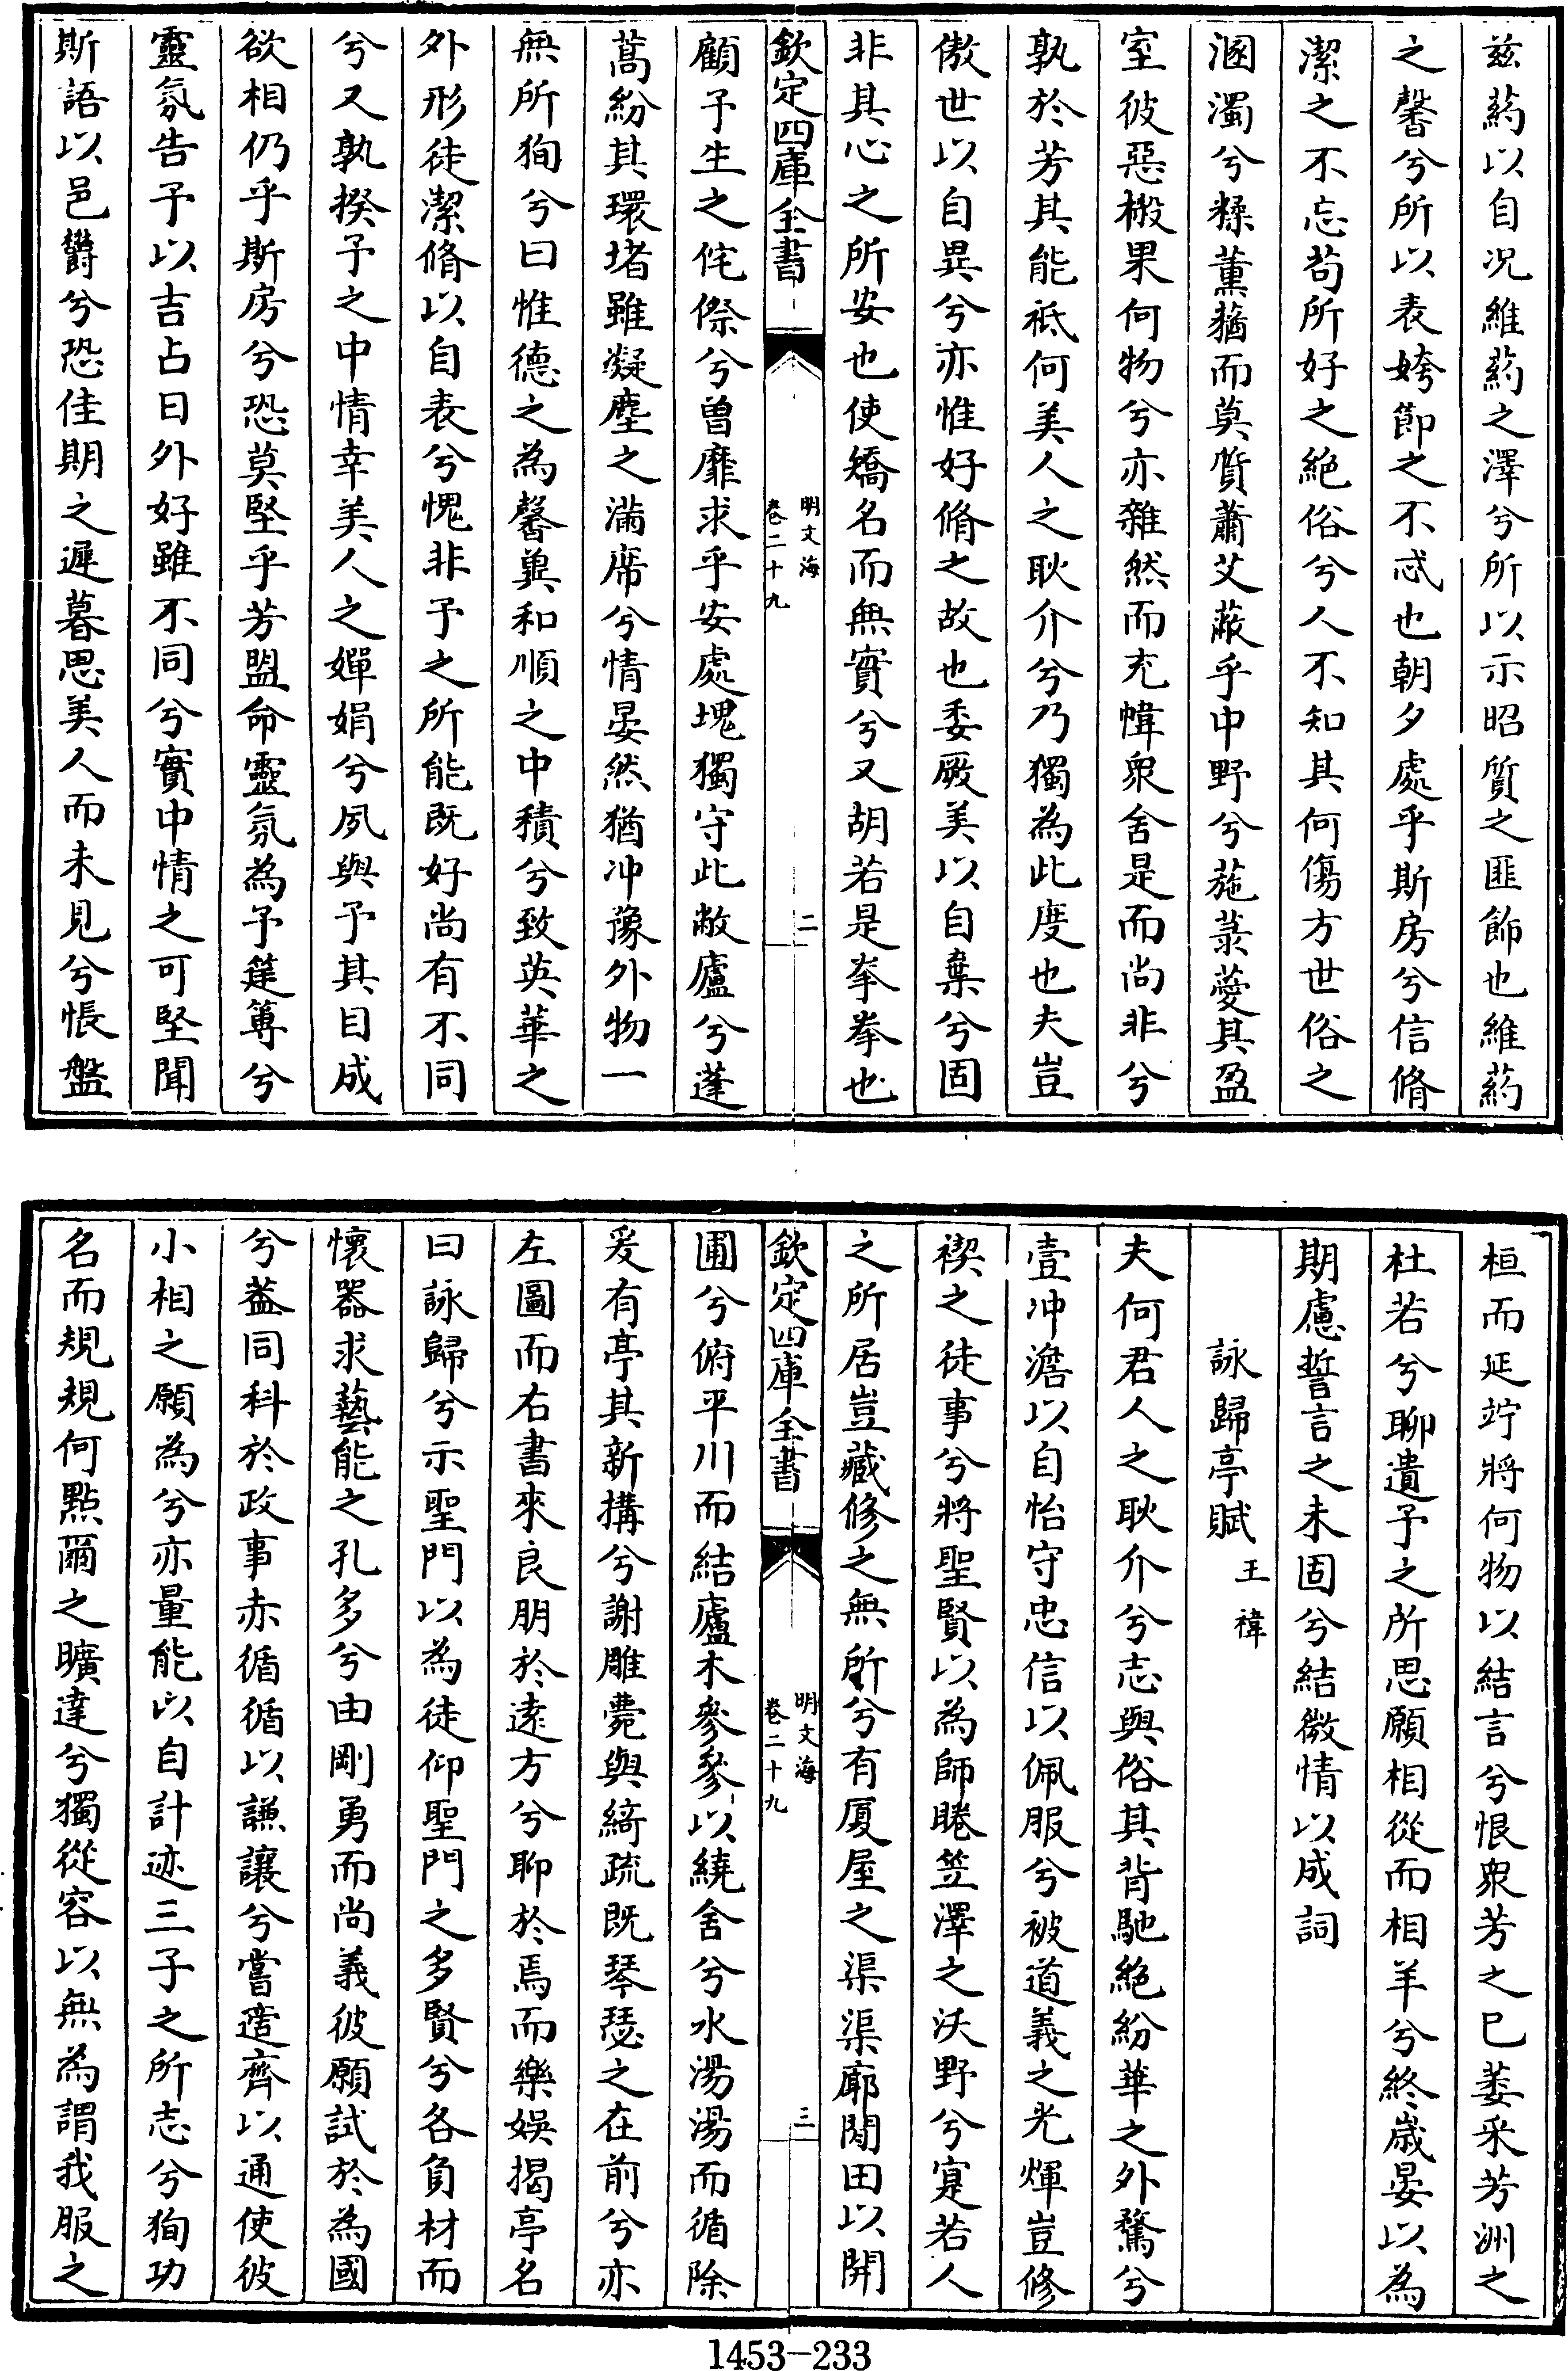 茲葯以自况維葯之澤兮所以示昭質之匪飾也維葯
之馨兮所以表姱節之不忒也朝夕處乎斯房兮信脩
潔之不忘苟所好之絶俗兮人不知其何傷方世俗之
溷濁兮糅薰蕕而莫質蕭艾蔽乎中野兮葹菉薆其盈
室彼惡樧果何物兮亦雜然而充幃衆舍是而尚非兮
孰於芳其能祗何美人之耿介兮乃獨為此度也夫豈
傲世以自異兮亦惟好脩之故也委厥美以自棄兮固
非其心之所安也使矯名而無實兮又胡若是拳拳也
欽定四庫全書
明文海
卷二十九
二
顧予生之侘傺兮曾靡求乎安處塊獨守此敝廬兮蓬
蒿紛其環堵雖凝塵之滿席兮情晏然猶冲豫外物一
無所狥兮曰惟德之為馨㠱和順之中積兮致英華之
外形徒潔脩以自表兮愧非予之所能既好尚有不同
兮又孰揆予之中情幸美人之嬋娟兮夙與予其目成
欲相仍乎斯房兮恐莫堅乎芳盟命靈氛為予筳篿兮
靈氛告予以吉占曰外好雖不同兮實中情之可堅聞
斯語以邑欝兮恐佳期之遲暮思美人而未見兮悵盤
桓而延竚將何物以結言兮恨衆芳之已萎采芳洲之
杜若兮聊遺予之所思願相從而相羊兮終歲晏以為
期慮誓言之未固兮結微情以成詞
詠歸亭賦 王禕
夫何君人之耿介兮志與俗其背馳絶紛華之外騖兮
壹冲澹以自怡守忠信以佩服兮被道義之光煇豈修
禊之徒事兮將聖賢以為師睠笠澤之沃野兮寔若人
之所居豈藏修之無所兮有厦屋之渠渠廓閒田以開
欽定四庫全書
明文海
卷二十九
三
圃兮俯平川而結廬木參參以繞舍兮水湯湯而循除
爰有亭其新搆兮謝雕甍與綺疏既琴瑟之在前兮亦
左圖而右書來良朋於逺方兮聊於焉而樂娛揭亭名
曰詠歸兮示聖門以為徒仰聖門之多賢兮各負材而
懷器求藝能之孔多兮由剛勇而尚義彼願試於為國
兮葢同科於政事赤循循以謙讓兮嘗遊齊以通使彼
小相之願為兮亦量能以自計迹三子之所志兮狥功
名而規規何㸃爾之曠達兮獨從容以無為謂我服之
1453-233